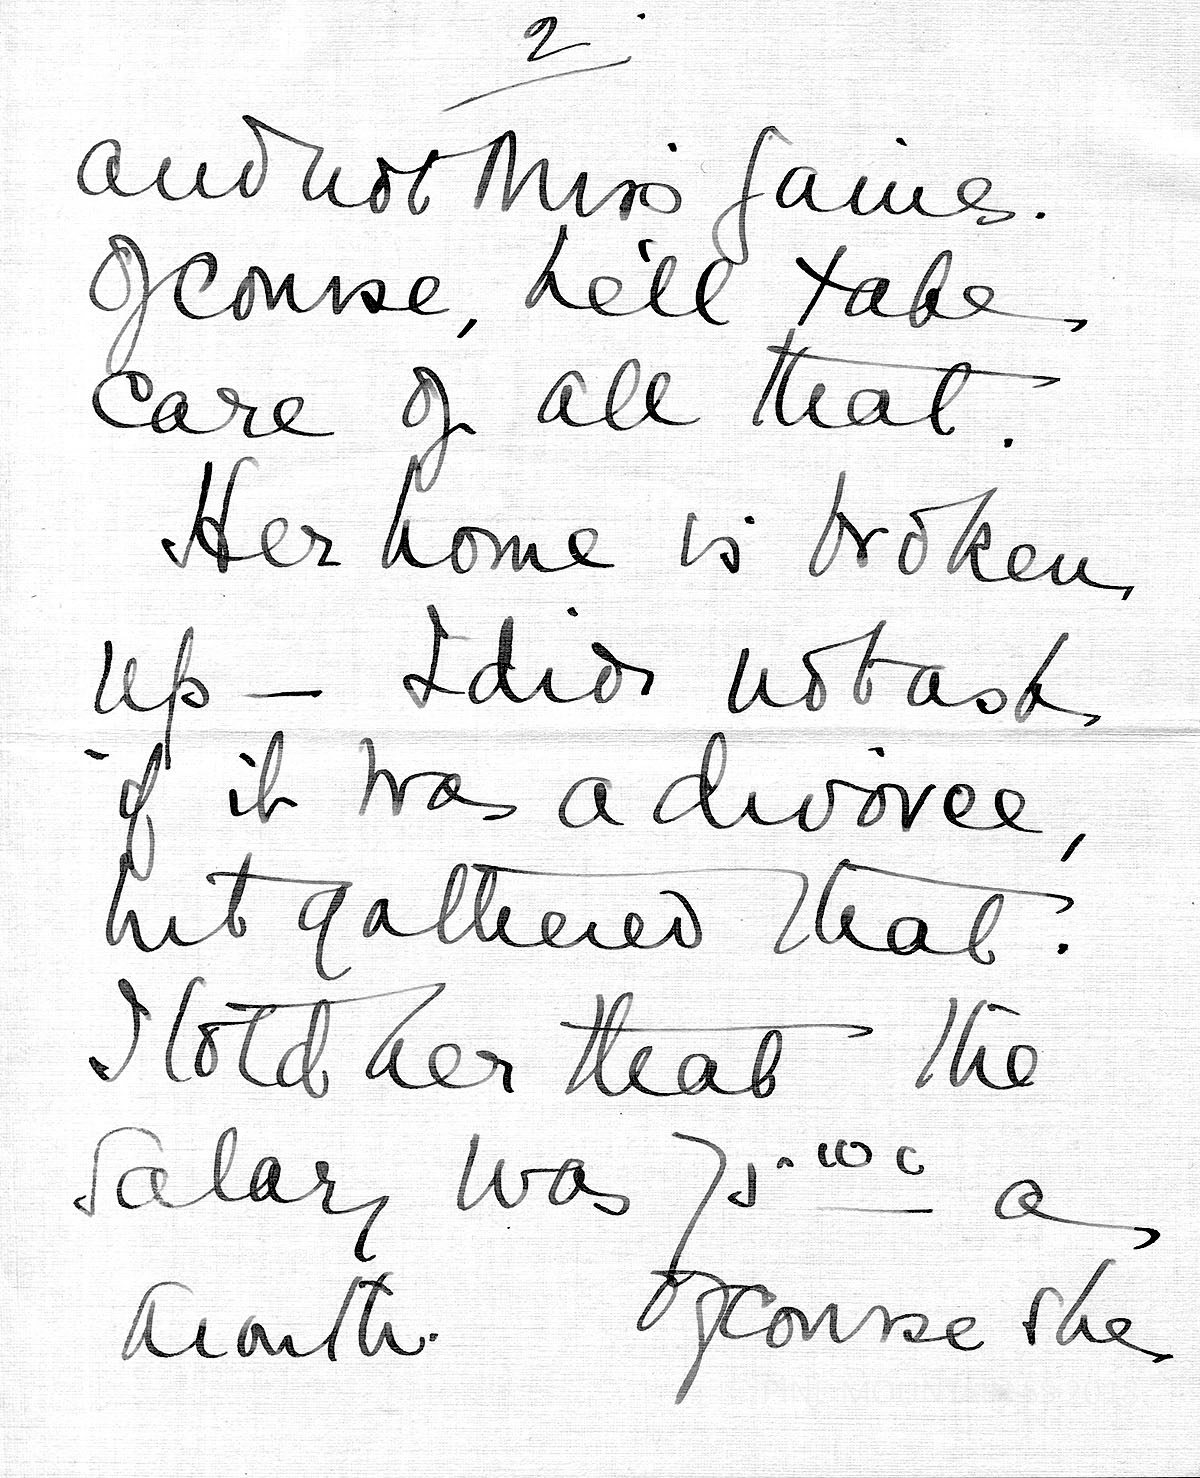 2
and not Miss Gaines.
Of course, he'll take
care of all that.
Her home is broken
up — I did not ask
if it was a divorce,
but gathered that.
I told her that the
salary was 75.00 a
month. Of course she